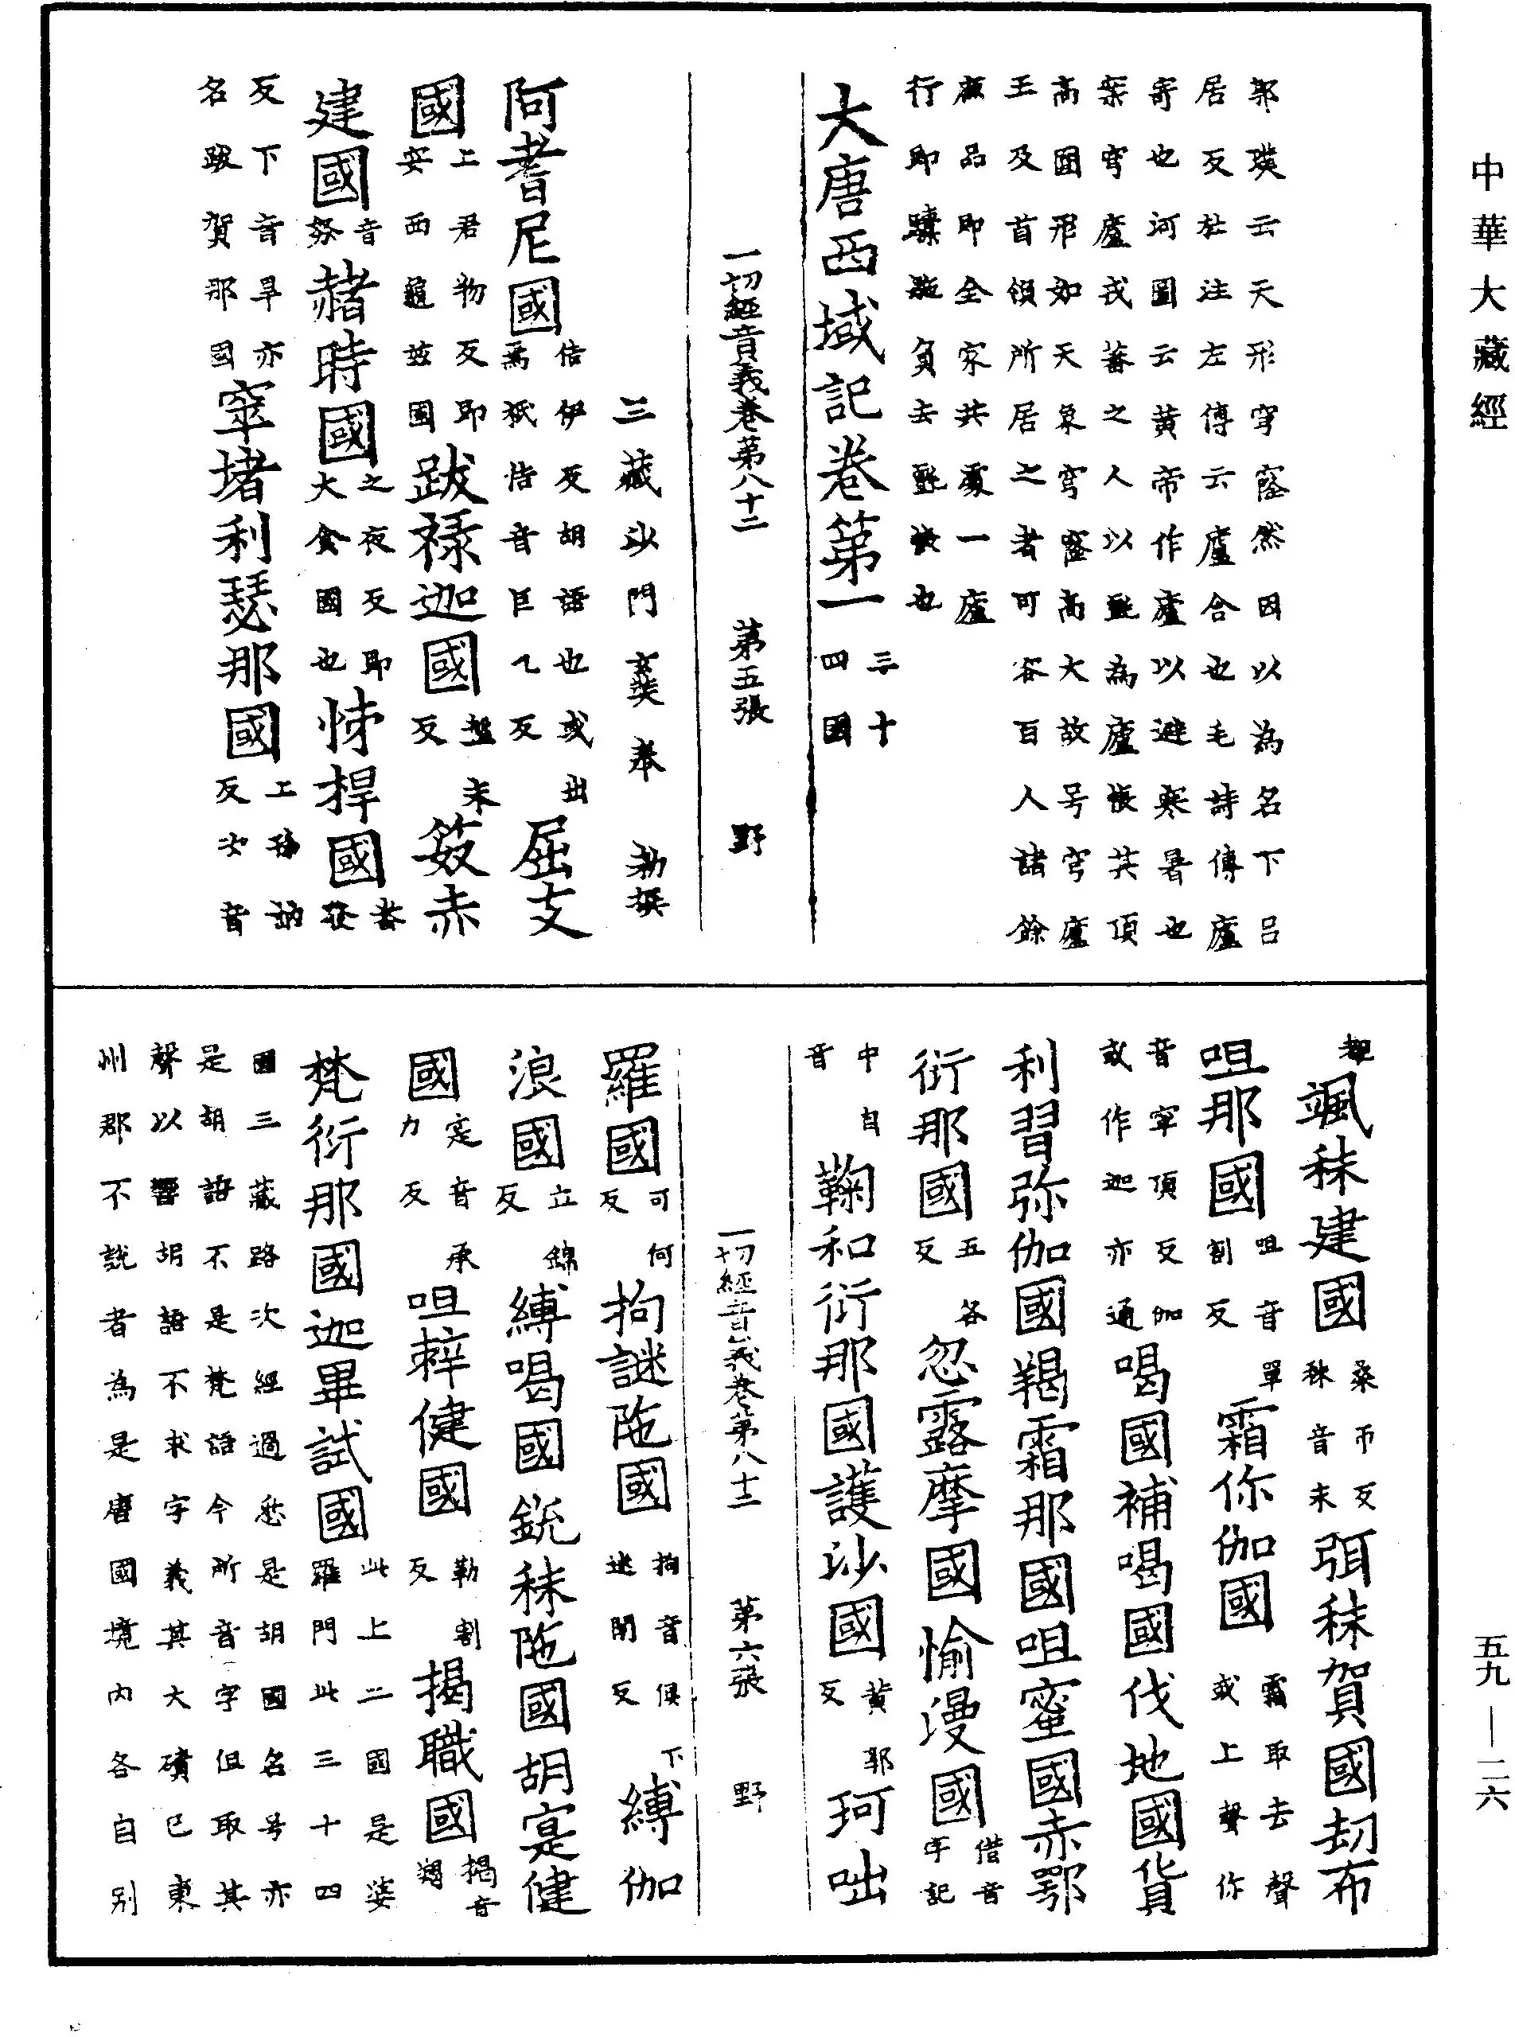 中華大藏經
郭璞云天形穹窿然因以為名下呂
居反杜注左傳云廬合也毛詩傳廬
寄也河圖云黃帝作廬以避寒暑也
案穹廬戎蕃之人以氈為廬帳其頂
高圓形如天象穹窿高大故号穹廬
王及首領所居之者可容百人諸餘
庶品即全家共處一廬
行即驥馳負去氈帳也
大唐西域記卷第一 三十四國
一切經音義卷第八十二 第五張 野
三藏沙門玄奘奉 勑撰
阿耆尼國 佶伊反胡語也或出焉祇佶音巨乙反 屈支
國 上君物反即安西龜茲國 跋祿迦國 盤末反 笯赤
建國 音努 赭時國 之夜反即大食國也 㤄捍國 發
反下音旱亦名跋賀那國 窣堵利瑟那國 上孫訥反次音
覩 颯秣建國 桑帀反秣音末 弭秣賀國 刧布
咀那國 咀音單割反 霜你伽國 霜取去聲你或上聲
音寧頂反伽或作迦亦通 喝國 補喝國 伐地國 貨
利習弥伽國 羯霜那國 咀蜜國 赤鄂
衍那國 五各反 忽露摩國 愉漫國 借音字記
中自音 鞠和衍那國 護沙國 黃郭反 珂咄
一切經音義卷第八十二 第六張 野
羅國 可何反 拘謎陁國 拘音俱下迷閉反 縛伽
浪國 立錦反 縛喝國 銳秣陁國 胡寔健
國 寔音承力反 咀剌健國 勒割反 揭職國 揭音
梵衍那國 迦畢試國 此上二國是婆羅門此三十四
國三藏路次經過悉是胡國名号亦
是胡語不是梵語今所音字但取其
聲以響胡語不求字義其大磧已東
州郡不說者為是唐國境內各自別
五九—二六